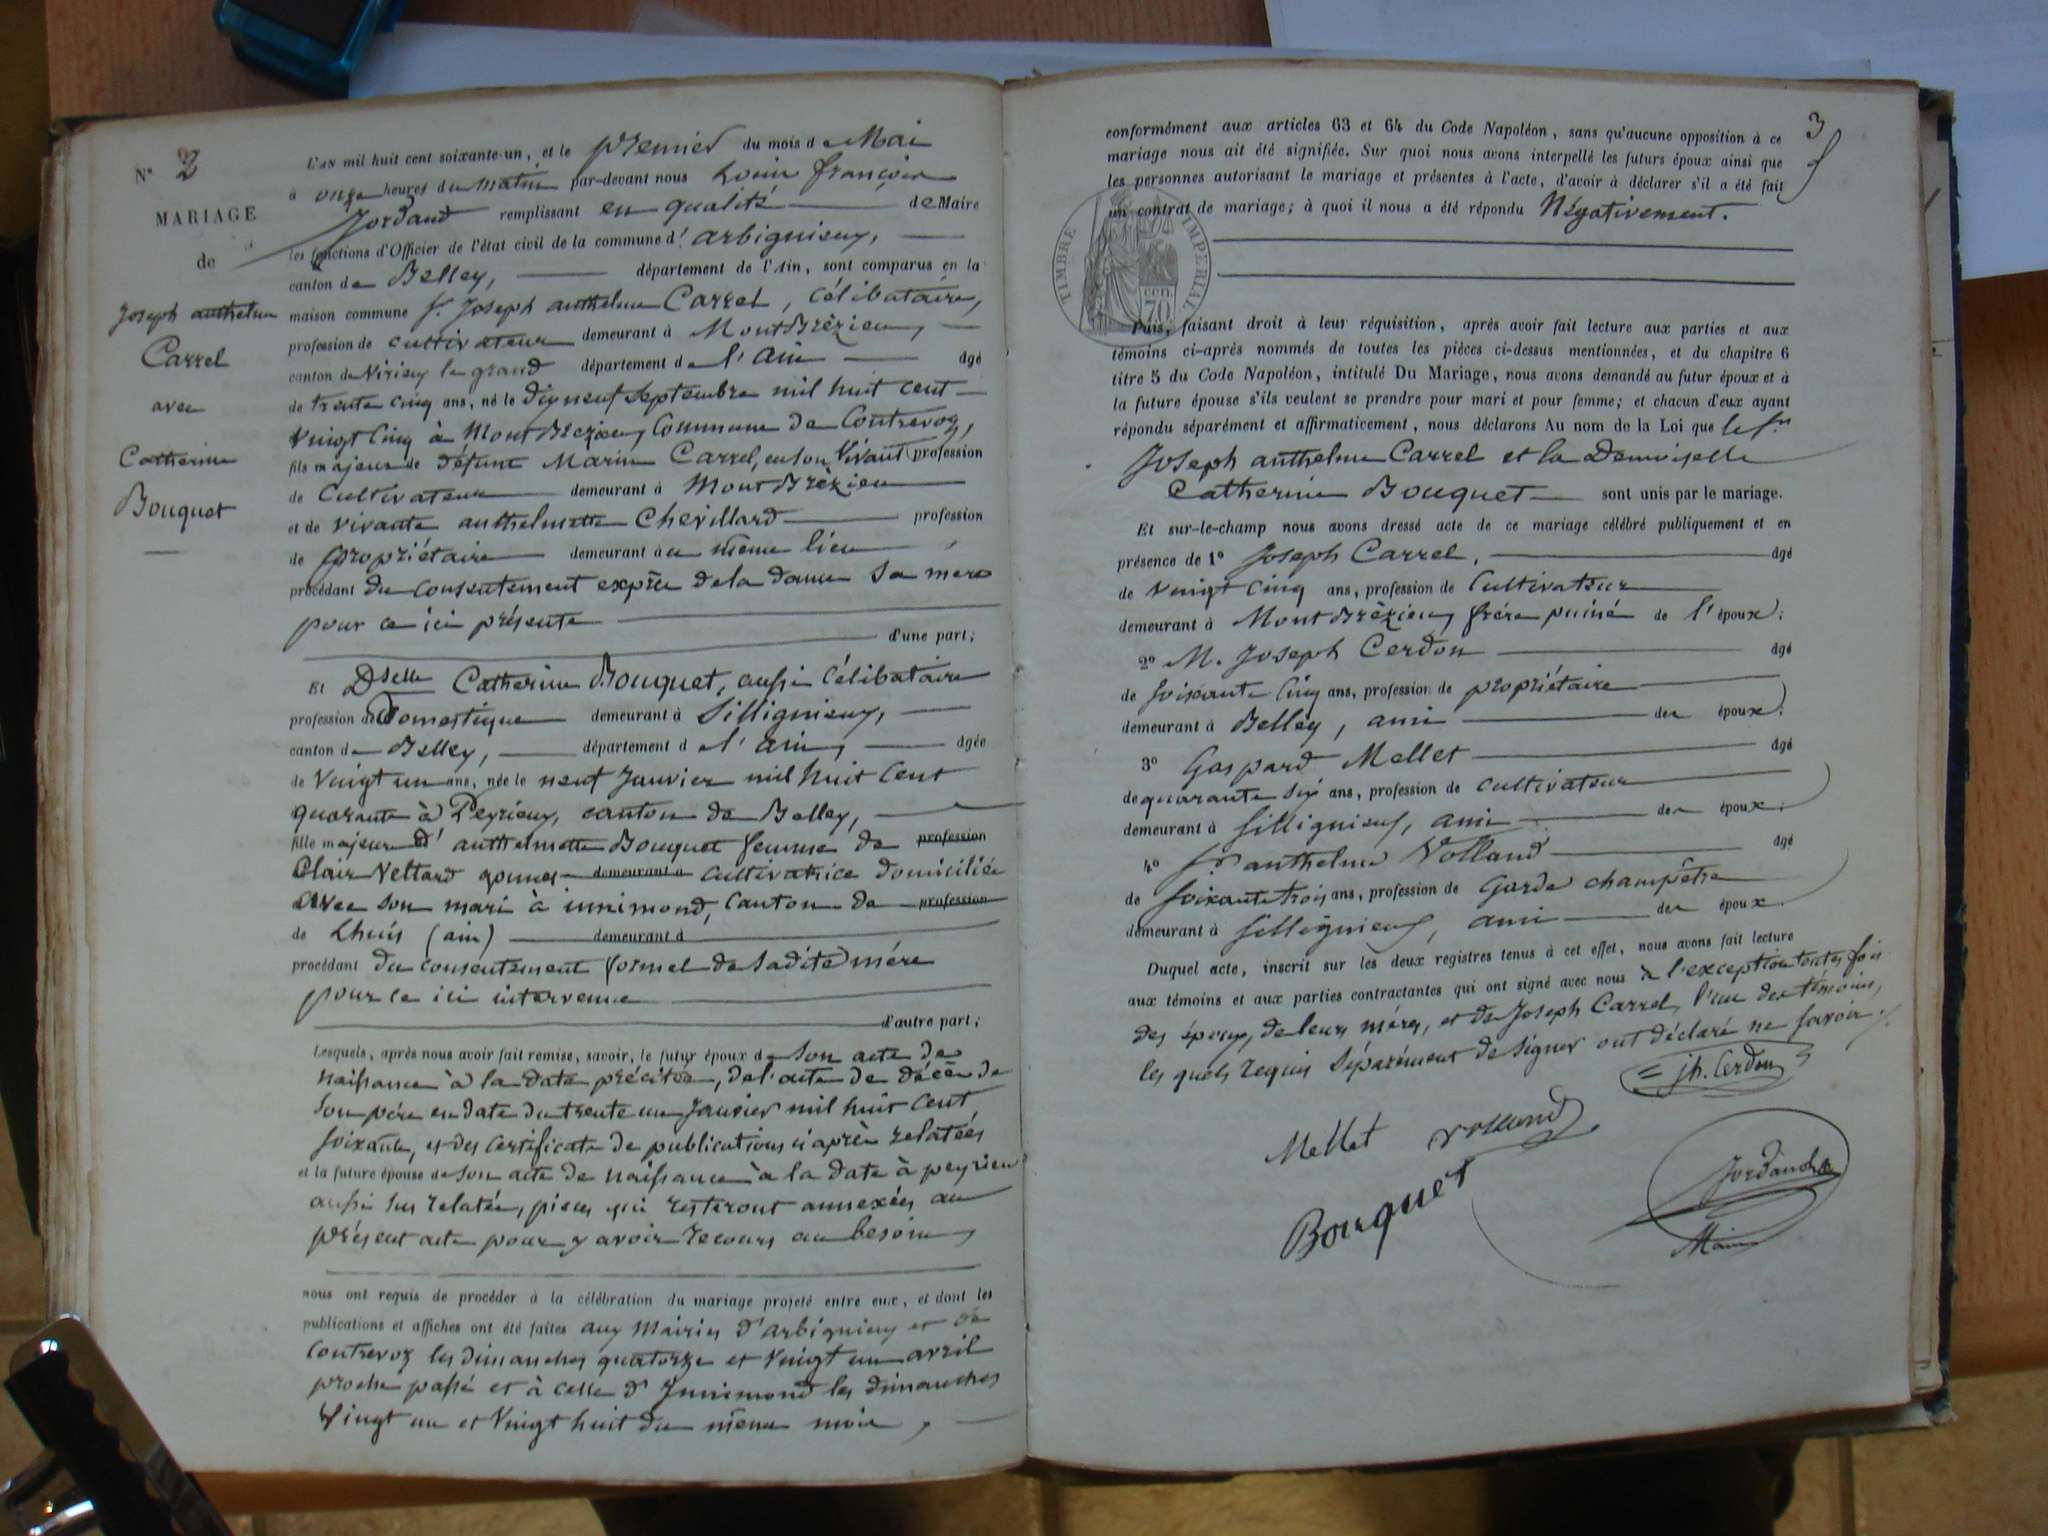 N° 2
MARIAGE
de
Joseph anthelme
Carrel
avec
Catherine
Bouquet
L'AN mil huit cent soixante-un, et le premier du mois de Mai
à onze heures du matin par-devant nous Louis françois
Jordand remplissant en qualité de Maire
les fonctions d'Officier de l'état civil de la commune d'arbignieux,
canton de Belley, département de l'Ain, sont comparus en la
maison commune Sr. Joseph anthelme Carrel, célibataire,
profession de cultivateur demeurant à MontBrézieu,
canton de Virieu le grand département de l'ain âgé
de trente cinq ans, né le dix neuf septembre mil huit cent
vingt cinq à MontBrezieu Commune de Contrevoz,
fils majeur de défunt Marin Carrel, en son vivant profession
de Cultivateur demeurant à MontBrézieu
et de vivante anthelmette Chevillard profession
de propriétaire demeurant au même lieu,
procédant du consentement exprès de la dame sa mère
pour ce ici présente
d'une part;
Et Dselle Catherine Bouquet, aussi Célibataire
profession de Domestique demeurant à Sillignieux,
canton de Belley, département de l'ain, âgée
de vingt un ans, née le neuf Janvier mil huit cent
quarante à Peyrieux, canton de Belley,
fille majeure d'anthelmette Bouquet femme de profession
Clair Vettard demeurant à cultivatrice domiciliée
avec son mari à innimond, Canton de profession
de Lhuis (ain) demeurant à
procédant du consentement formel de sadite mère
pour ce ici intervenue
d'autre part;
Lesquels, après nous avoir fait remise, savoir, le futur époux de Son acte de
naissance à la date précitée, de l'acte de décès de
son père en date du trente un Janvier mil huit cent
soixante, et des certificats de publications ci après relatées
et la future épouse de son acte de naissance à la date à peyrieu
aussi sus relatée, pièces qui resteront annexées au
présent acte pour y avoir recours au besoin,
nous ont requis de procéder à la célébration du mariage projeté entre eux, et dont les
publications et affiches ont été faites aux Mairies d'arbignieux et de
Contrevoz les dimanches quatorze et vingt un avril
proche passé et à celle d'Innimond les dimanches
vingt un et vingt huit du même mois,
3
conformément aux articles 63 et 64 du Code Napoléon, sans qu'aucune opposition à ce
mariage nous ait été signifiée. Sur quoi nous avons interpellé les futurs époux ainsi que
les personnes autorisant le mariage et présentes à l'acte, d'avoir à déclarer s'il a été fait
un contrat de mariage; à quoi il nous a été répondu Négativement.
TIMBRE IMPERIAL
70 cen.
Puis, faisant droit à leur réquisition, après avoir fait lecture aux parties et aux
témoins ci-après nommés de toutes les pièces ci-dessus mentionnées, et du chapitre 6
titre 5 du Code Napoléon, intitulé Du Mariage, nous avons demandé au futur époux et à
la future épouse s'ils veulent se prendre pour mari et pour femme; et chacun d'eux ayant
répondu séparément et affirmativement, nous déclarons Au nom de la Loi que le Sr
Joseph anthelme Carrel et la Demoiselle
Catherine Bouquet sont unis par le mariage.
Et sur-le-champ nous avons dressé acte de ce mariage célébré publiquement et en
présence de 1° Joseph Carrel, âgé
de vingt cinq ans, profession de Cultivateur
demeurant à MontBrézieu frère puiné de l'époux;
2° M. Joseph Cerdon âgé
de soixante cinq ans, profession de propriétaire
demeurant à Belley, ami des époux;
3° Gaspard Mellet âgé
de quarante six ans, profession de cultivateur
demeurant à Sillignieux, ami des époux;
4° Sr anthelme Volland âgé
de soixante trois ans, profession de Garde champêtre
demeurant à Sillignieux, ami des époux.
Duquel acte, inscrit sur les deux registres tenus à cet effet, nous avons fait lecture
aux témoins et aux parties contractantes qui ont signé avec nous à l'exception toutes fois
des époux, de leurs mères, et de Joseph Carrel, l'un des témoins,
les quels requis séparément de signer ont déclaré ne savoir.
jh. Cerdon
Mellet Volland
Bouquet
Jordand
Maire